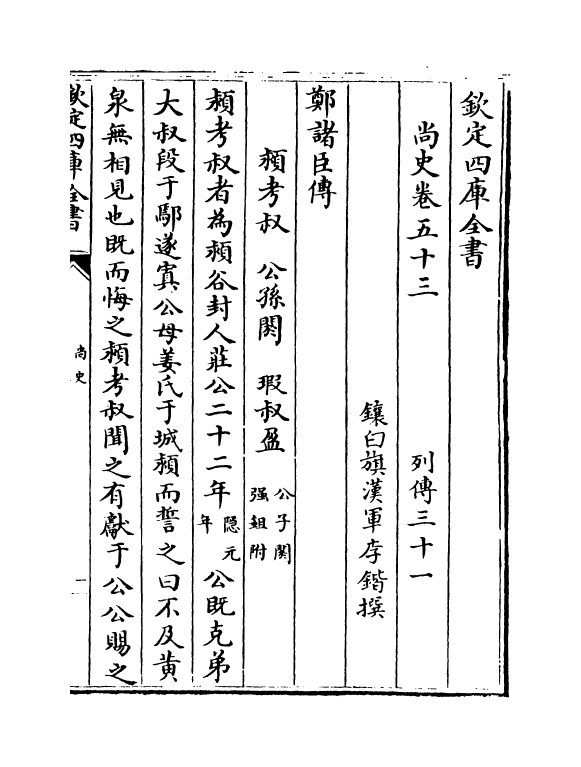 欽定四庫全書
尚史卷五十三　列傳三十一
鑲白旗漢軍李鍇撰
鄭諸臣傳
潁考叔　公孫閼　瑕叔盈　公子閼
强鉏附
潁考叔者為潁谷封人莊公二十二年隐元
年公既克弟
大叔段于鄢遂寘公母姜氏于城潁而誓之曰不及黄
泉無相見也既而悔之潁考叔聞之有獻于公公賜之
欽定四庫全書
尚史
一